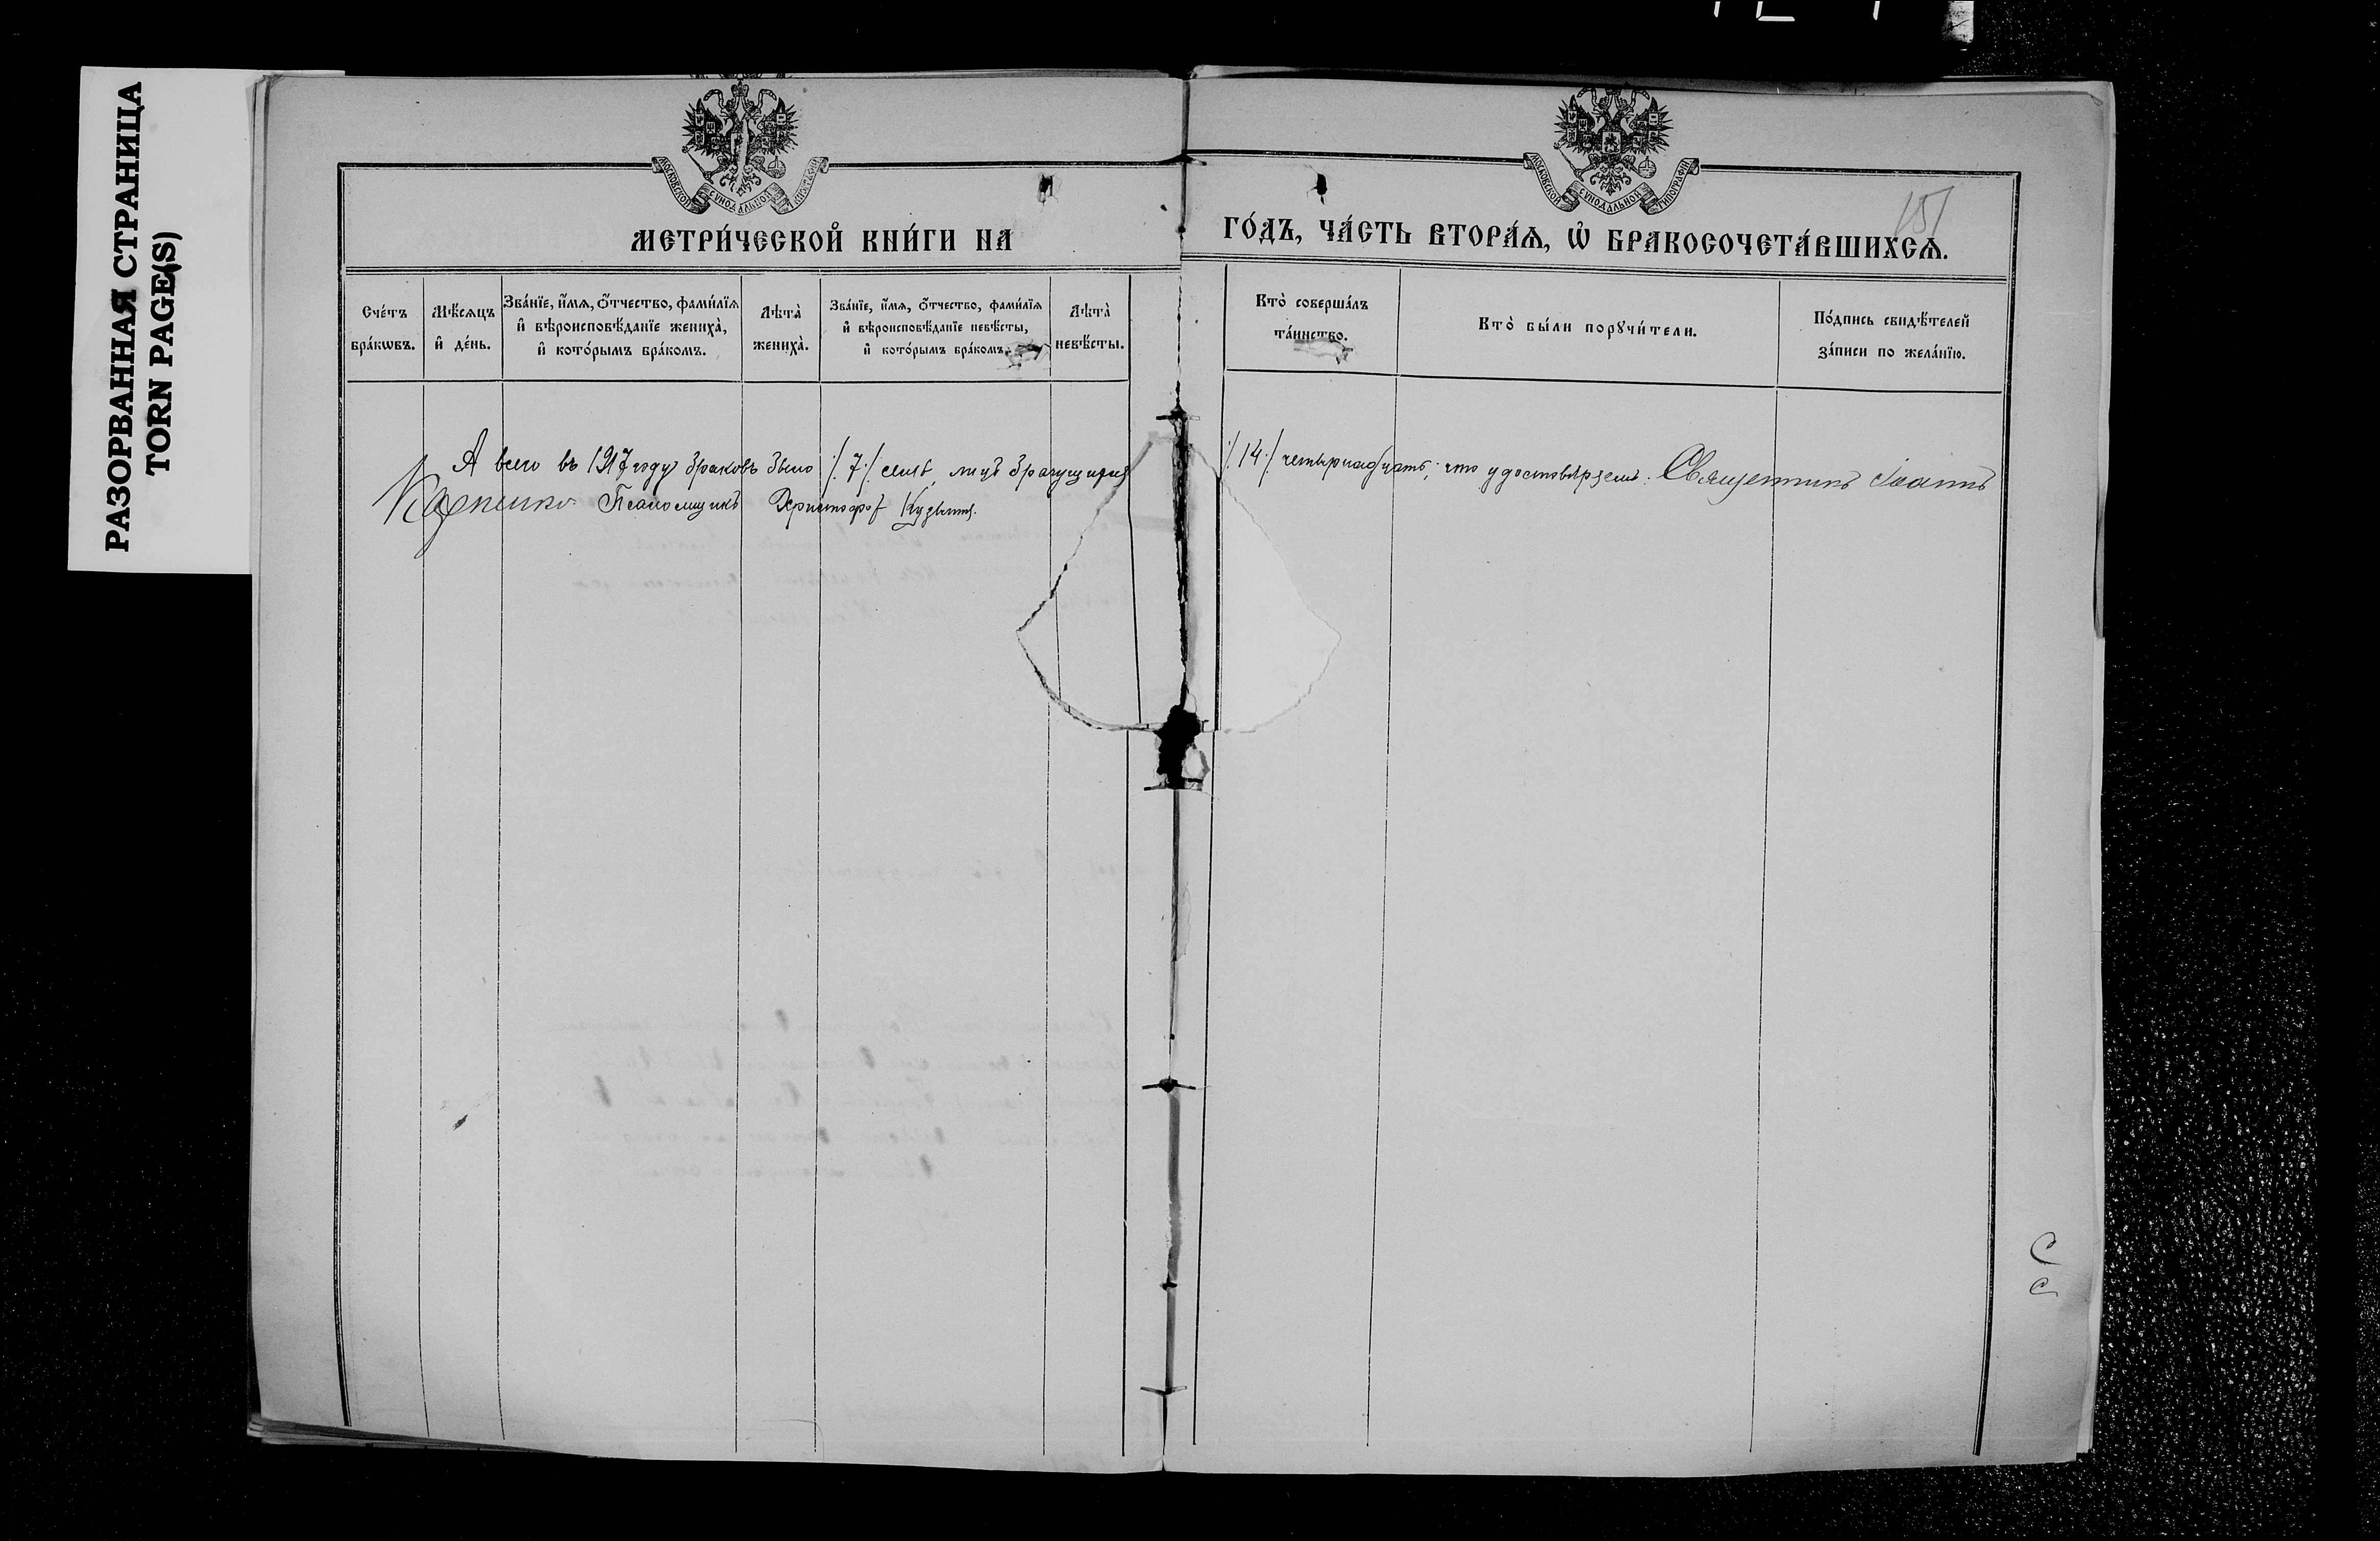 РАЗОРВАННАЯ СТРАНИЦА
TORN PAGE(S)
МОСКОВСКОЙ СѴНОДАЛЬНОЙ ТИПОГРАФІИ
МОСКОВСКОЙ СѴНОДАЛЬНОЙ ТИПОГРАФІИ
151
МЕТРИ́ЧЕСКОЙ КНИ́ГИ НА ГО́ДЪ, ЧА́СТЬ ВТОРА́Ѧ, Ѡ҆ БРАКОСОЧЕТА́ВШИХСѦ.
Сче́тъ бра́кѡвъ.
Мѣ́сѧцъ и҆ де́нь.
Зва́нїе, и҆́мѧ, ѻ҆́тчество, фами́лїѧ и҆ вѣроисповѣ́данїе жениха̀, и҆ кото́рымъ бра́комъ.
Лѣта̀ жениха̀.
Зва́нїе, и҆́мѧ, ѻ҆́тчество, фами́лїѧ и҆ вѣроисповѣ́данїе невѣ́сты, и҆ кото́рымъ бра́комъ.
Лѣта̀ невѣ́сты.
Кто̀ соверша́лъ та́инство.
Кто̀ бы́ли порꙋчи́тели.
По́дпись свидѣ́телей за́писи по жела́нїю.
А всего въ 1917 году браковъ было /7/ семь, лицъ брачущихся /14/ четырнадцать; что удостовѣряемъ: Священникъ Іоаннъ
Псаломщикъ Христофоръ